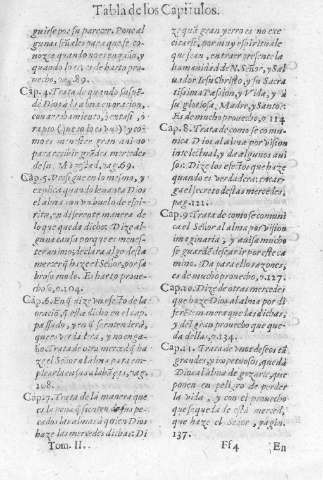 Tabla de los Capitulos.
guirse por su parecer. Pone al
gunas señales para que se co-
nozca quando no es engaño, y
quando lo es es de harto pro-
uecho, pag. 89.
Cap. 4. Trata de quando suspẽ-
de Dios a la alma en oracion,
con arrobamiento, ò extasi, ò
rapto (que todo es vno) y co-
mo es menester gran ani-
mo para recibir grãdes mercedes
de su Magestad, pag. 69.
Cap. 5. Prosigue en lo mismo, y
explica quando leuanta Dios
el alma con vn buelo de espi-
ritu, en diferente manera de
lo que queda dicho: Dize al-
guna causa porque es menes-
ter animo; declara algo desta
merced q̃ haze el Señor, por sa
broso modo. Es harto proue-
choso, p. 104.
Cap. 6. En q̃ dize vn efecto de la
oraciõ, q̃ està dicho en el cap.
passado, y en q̃ se entenderá,
que es verdadera, y no enga-
ño. Trata de otra merced q̃ ha
ze el Señor al alma para em-
plearla en sus alabãças, pag.
108.
Cap. 7. Trata de la manera que
es la pena q̃ sienten de sus pe-
cados las almas à quien Dios
haze las mercedes dichas: Di
ze quã gran yerro es no exer-
citarse, por muy espirituales
que sean, en traer presente la
humanidad de N. Señor, y Sal
uador Iesu Christo, y su Sacra
tissima Passion, y Vida, y a
su gloriosa Madre, y Santos:
Es de mucho prouecho, p. 114
Cap. 8. Trata de como se comu
nica Dios al alma por vision
intelectual, y da algunos aui
sos: Dize los efectos que haze
quando es verdadera: encar-
ga el secreto destas mercedes,
pag. 121.
Cap. 9. Trata de como se comuni
ca el Señor al alma por vision
imaginaria; y auisa mucho
se guardẽ desear ir por este ca
mino. Da para ello razones,
es de mucho prouecho, p. 127.
Cap. 10. Dize de otras mercedes
que haze Dios al alma por di
ferente manera que las dichas;
y del gran prouecho que que-
da dellas, p. 134.
Cap. 11. Trata de vnos desseos tã
grandes, è impetuosos, que da
Dios al alma de gozarle, que
ponen en peligro de perder
la vida, y con el prouecho
que se queda de esta merced,
que haze el Señor, pagin.
137.
Tom. II. Ff 4 En